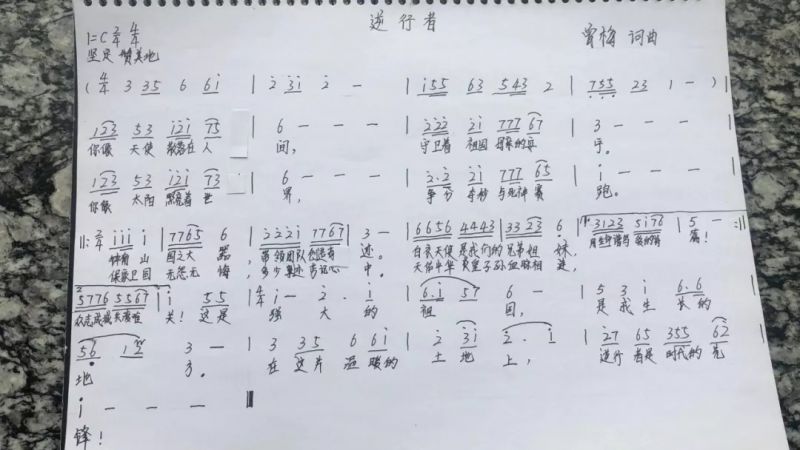 逆行者
1=C 2/4 4/4
曾梅 词曲
坚定 赞美地
( 4/4 3 35 6 6i | 2 3i 2 - | i55 63 543 2 | 755 23 1 - ) |
123 53 i2i 75 | 6 - - - | 222 2i 777 67 | 3 - - - |
你像 天使 散落在 人 间, 守卫着 祖国 母亲的 乎。
123 53 i2i 73 | 6 - - - | 2·2 2i 777 65 | i - - - |
你像 太阳 照亮着 世 界, 争分 夺秒 与死神 赛 跑。
||: 2/4 iii i | 7765 6 | 222i 7767 | 3 - | 6656 4443 | 3323 6 | 3123 5i76 | 5 - :||
钟南 山 国之大 器, 带领团队 创造奇 迹。 白衣天使 是我们的 兄弟姐 妹,
保家卫国 无怨无 悔, 多少 记心 中。 天佑中华 炎皇子孙 血脉相 连,
5776 5567 | i 55 | 4/4 i - 2· i | 6·i 57 6 - | 5 3 i 6·6 |
众志成城 关! 这是 强 大 的 祖 国, 是 我 生 长的
56 12 3 - | 3 35 6 6i | 2 3i 2· i | 27 65 355 62 |
地 方。 在 这片 温 暖的 土 地 上, 逆行 者是 时代的 先
i - - - ||
锋!